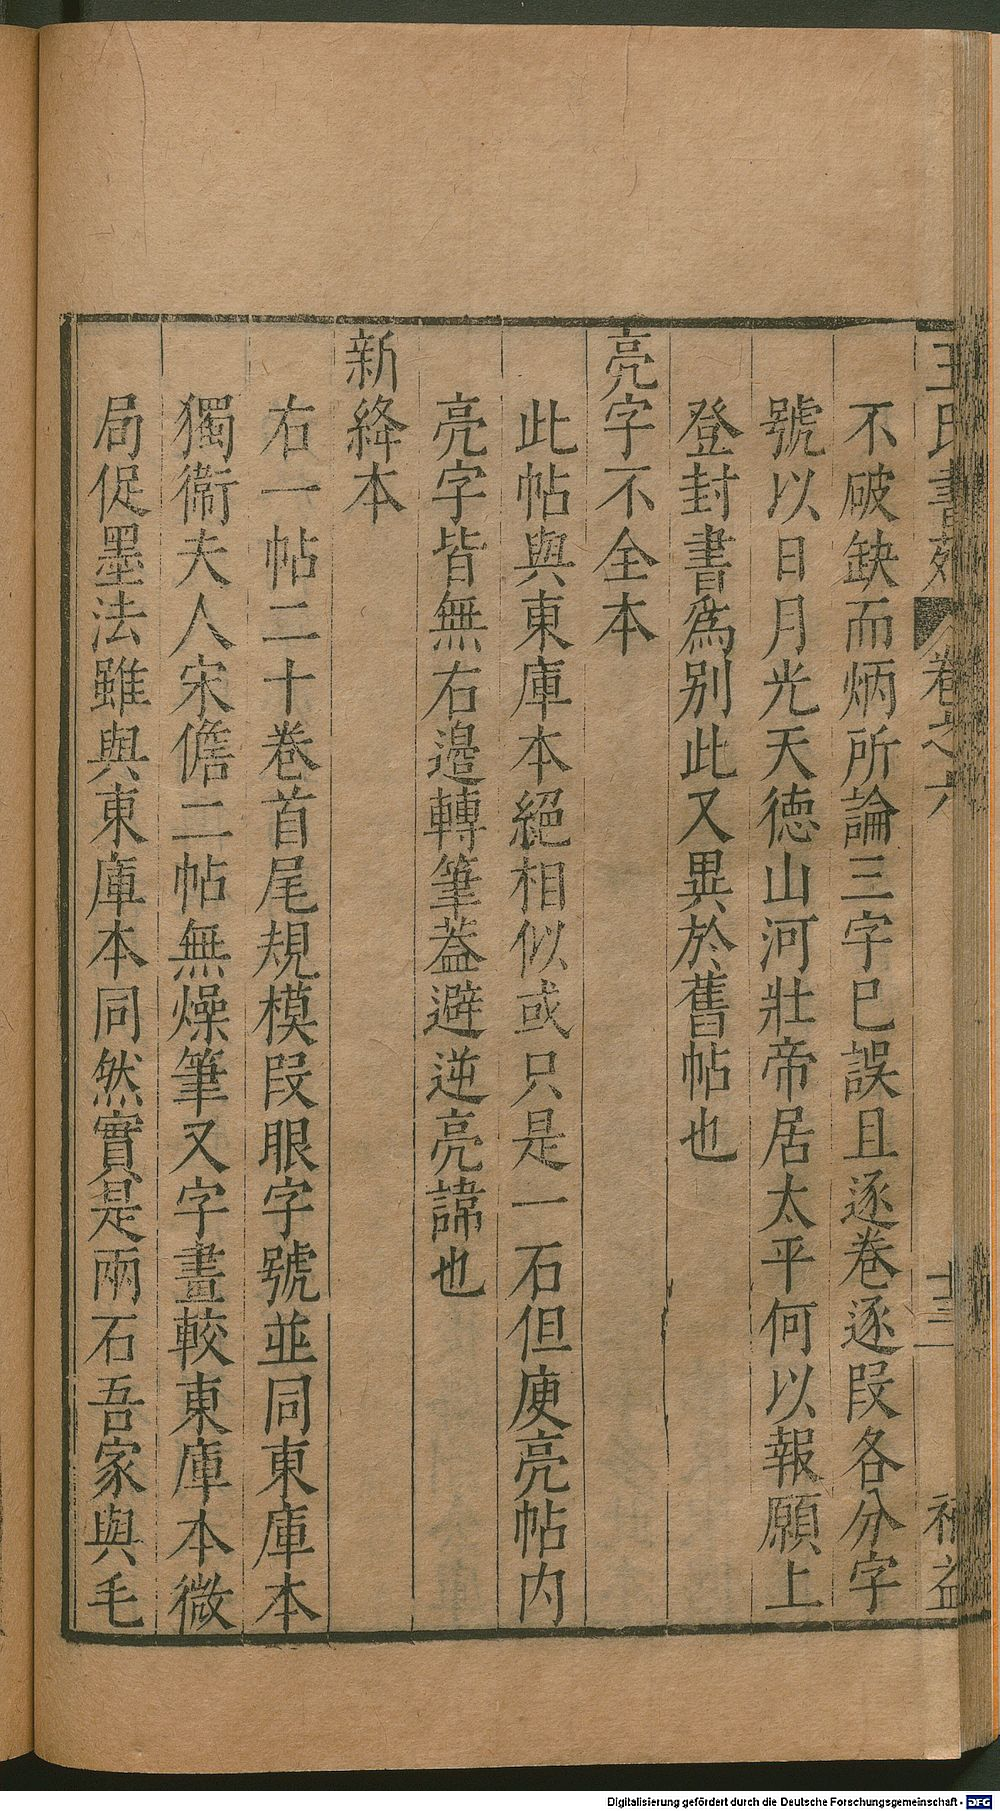 王氏書苑 卷之六 十三 補益
不破缺而炳所論三字已誤且逐巻逐段各分字
號以日月光天德山河壯帝居太平何以報願上
登封書爲别此又異於舊帖也
亮字不全本
此帖與東庫本絕相似或只是一石但庾亮帖内
亮字皆無右邉轉筆葢避逆亮諱也
新絳本
右一帖二十巻首尾規模段眼字號並同東庫本
獨衞夫人宋儋二帖無燥筆又字畫較東庫本微
局促墨法雖與東庫本同然實是兩石吾家與毛
Digitalisierung gefördert durch die Deutsche Forschungsgemeinschaft - DFG